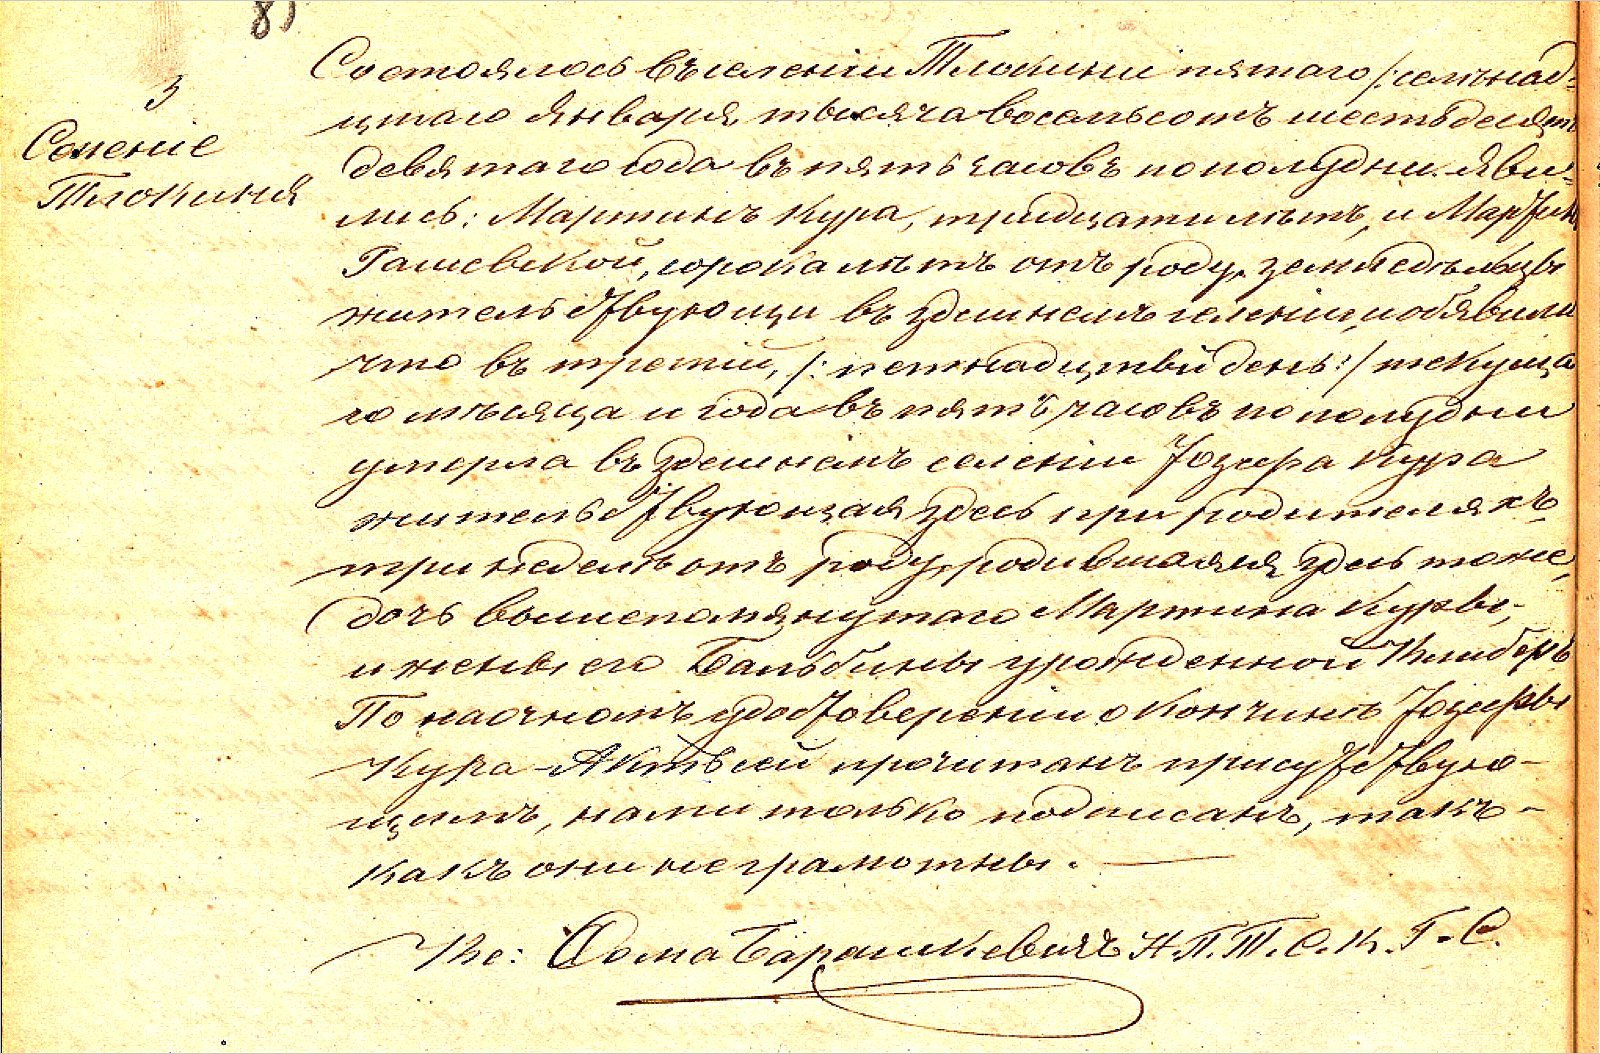 8)
3
Селеніе
Тлокиня
Состоялось въ селеніи Тлокини пятаго /:семнад-
цтаго Января, тысяча восемьсотъ шестьдесятъ
девятаго года въ пять часовъ по полудни. Яви-
лись: Мартинъ Кура, тридцати лѣтъ, и Мартин
сорока лѣтъ отъ роду, земледѣльцы
жительствующи въ здешнемъ селеніи, и объявили
что въ третій, /: петнадцтый день:/ текуща
го мѣсяца и года въ пять часовъ по полудни
умерла въ здешнемъ селеніи Іозефа Кура
жительствующая здесь при родителяхъ,
три недели отъ роду, родившаяся здесь тоже,
дочь вышепомянутаго Мартина Куры,
и жены его Бальбины урожденной
По наочномъ удостоверении о кончинѣ Іозефы
Кура - Актъ сей прочитанъ присутствую-
щимъ, нами только подписанъ, такъ-
какъ они неграмотны. —
Кс: Фома Барашкевичъ Н.П.Т.С.К.Г.С.